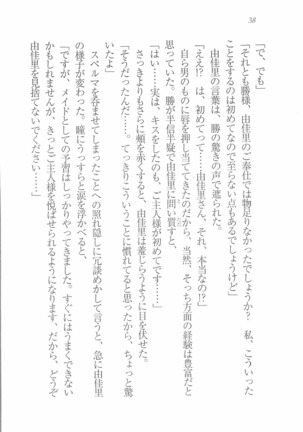 38
「で、でも」
「それとも勝様、由佳里のご奉仕では物足りなかったでしょうか? 私、こういった
ことをするのは初めてなので至らない点もあるでしょうけど」
由佳里の言葉は、勝の驚きの声で遮られた。
「ええ!? は、初めてって……由佳里さん、それ、本当なの!?」
自ら男のものに唇を押し当ててきたのだから、当然、そっち方面の経験は豊富だと
思っていた。勝が半信半疑で由佳里に問い質すと、
「はい……実は、キスをしたのも、ご主人様が初めてです」
さっきよりもさらに頬を赤くすると、由佳里は羞じらうように目を伏せた。
「そうだったんだ……。てっきりこういうことに慣れてると思ったから、ちょっと驚
いたよ」
スペルマを呑ませてしまったことへの照れ隠しに冗談めかして言うと、急に由佳里
の様子が変わった。瞳にうっすらと涙を浮かべると、
「ですが、メイドとしての予習はしっかりやってきました。すぐにはうまくできない
かもしれませんが、きっとご主人様を悦ばせられるようになります。だから、どうぞ
由佳里を見捨てないでください……」